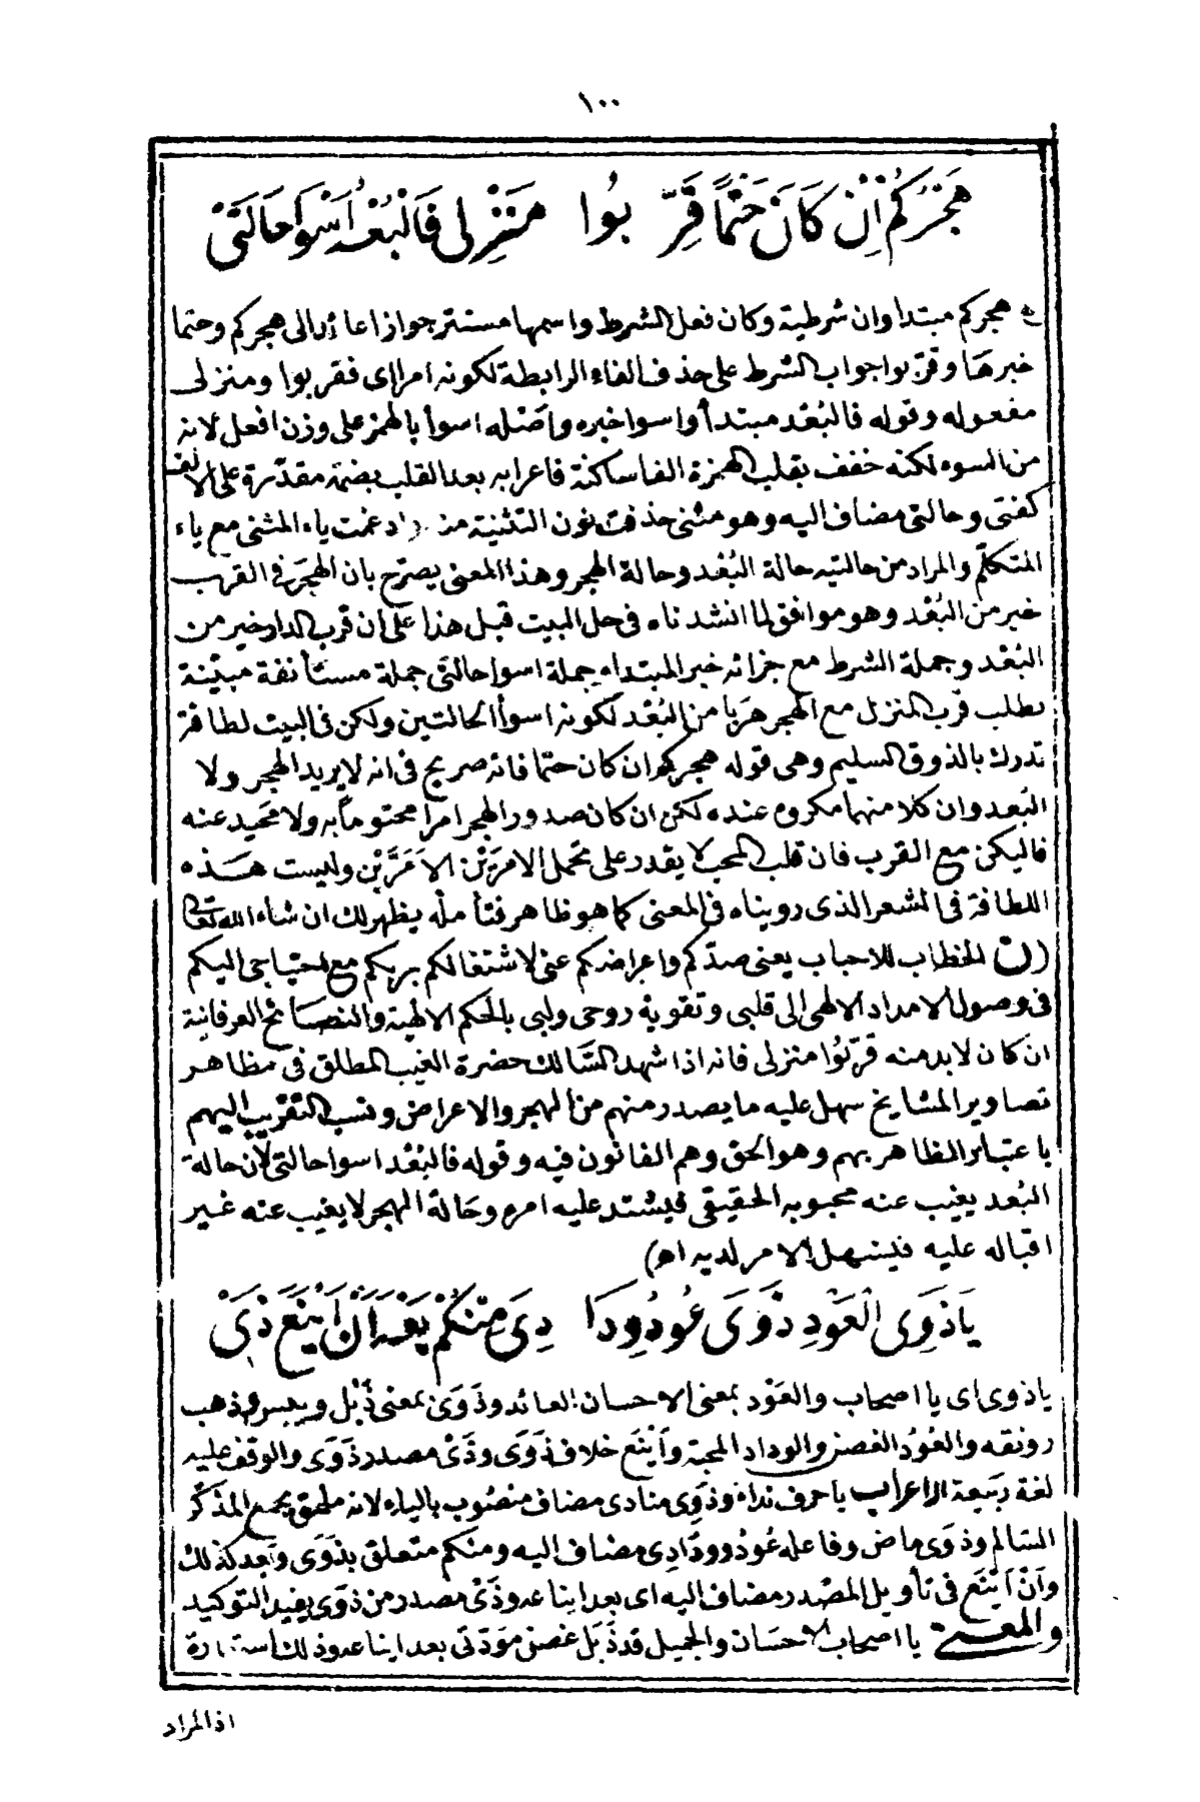 ١٠٠
هَجْرُكُمْ اِنْ كَانَ حَتْمًا قَرِّ بُوا مَنْزِلِى فَالْبُعْدُ اَسْوَا حَالَتَىْ
هجركم مبتدا وان شرطية وكان فعل الشرط واسمها مستتر جوازا عائد الى هجركم وحتما
خبرها وقرّبوا جواب الشرط على حذف الفاء الرابطة لكونه امرا اى فقربوا ومنزلى
مفعوله وقوله فالبُعْد مبتدأ واسوا خبره واصْله اسوأ بالهمز على وزن افعل لانه
من السوء لكنه خفف بقلب الهمزة الفا ساكنة فاعرابه بعد القلب بضمة مقدّرة على الالف
كفتى وحالتى مضاف اليه وهو مثنى حذفت نون التثنية منه وادغمت ياء المثنى مع ياء
المتكلّم والمراد من حالتيه حالة البُعْد وحالة الهجر وهذا المعنى يصرّح بان الهجر فى القرب
خير من البُعْد وهو موافق لما انشدناه فى حل البيت قبل هذا على ان قرب الدار خير من
البُعْد وجملة الشرط مع جزائه خبر المبتداء وجملة اسوا حالتى جملة مستأنفة مبيّنة
بطلب قرب المنزل مع الهجر هربا من البُعْد لكونه اسوأ الحالتين ولكن فى البيت لطافة
تدرك بالذوق السليم وهى قوله هجركم ان كان حتما فانه صريح فى انه لا يريد الهجر ولا
البُعد وان كلا منهما مكروه عنده لكن ان كان صدور الهجر امرا محتوما به ولا محيد عنه
فاليكن مع القرب فان قلب المحب لا يقدر على تحمل الامرين الامَرَّيْن وليست هذه
اللطافة فى الشعر الذى رويناه فى المعنى كما هو ظاهر فتأمله يظهر لك ان شاء الله تعالى
(ن) الخطاب للاحباب يعنى صدّكم واعراضكم عنى لاشتغالكم بربكم مع احتياجى اليكم
فى وصول الامداد الالهى الى قلبى وتقوية روحى ولبى بالحكم الالهية والنصائح العرفانية
ان كان لا بد منه قرّبُوا منزلى فانه اذا شهد السَّالك حضرة الغيب المطلق فى مظاهر
تصاوير المشايخ سهل عليه ما يصدر منهم من الهجر والاعراض ونسب التقريب اليهم
باعتبار الظاهر بهم وهو الحق وهم الفانون فيه وقوله فالبُعْد اسوا حالتى لان حالة
البُعد يغيب عنه محبوبه الحقيقى فيشتد عليه امره وحَالة الهجر لا يغيب عنه غير
اقباله عليه فيسهل الامر لديه اه)
يَاذَوِى الْعَوْدِ ذَوَى عُودُ وِدَا دِىَ مِنْكُمْ بَعْدَ اَنْ اَيْنَعَ ذَىْ
ياذوى اى يا اصحاب والعَوْد بمعنى الاحسان العائد وذَوَى بمعنى ذَبْل ويبس وذهب
رونقه والعُوُد الغصن والوداد المحبة وأيْنَع خلاف ذَوَى وذَىْ مصدر ذَوَى والوقف عليه
لغة ربيعة الاعراب يا حرف نداء وذَوِى منادى مضاف منصُوب بالياء لانه ملحق بجمع المذكّر
السّالم وذوَى ماض وفاعله عُودُ وودَادِى مضاف اليه ومنكم متعلق بذَوَى وبَعد كذلك
وأنْ أيْنَع فى تأويل المصْدر مضاف اليه اى بعد ايناعه وذَىْ مصدر من ذَوَى يفيد التوكيد
والمعنى يا اصحاب الاحسَان والجميل قد ذَبَل غصن مَوَدّتى بعد ايناعه وذلك استعارة
اذ المراد